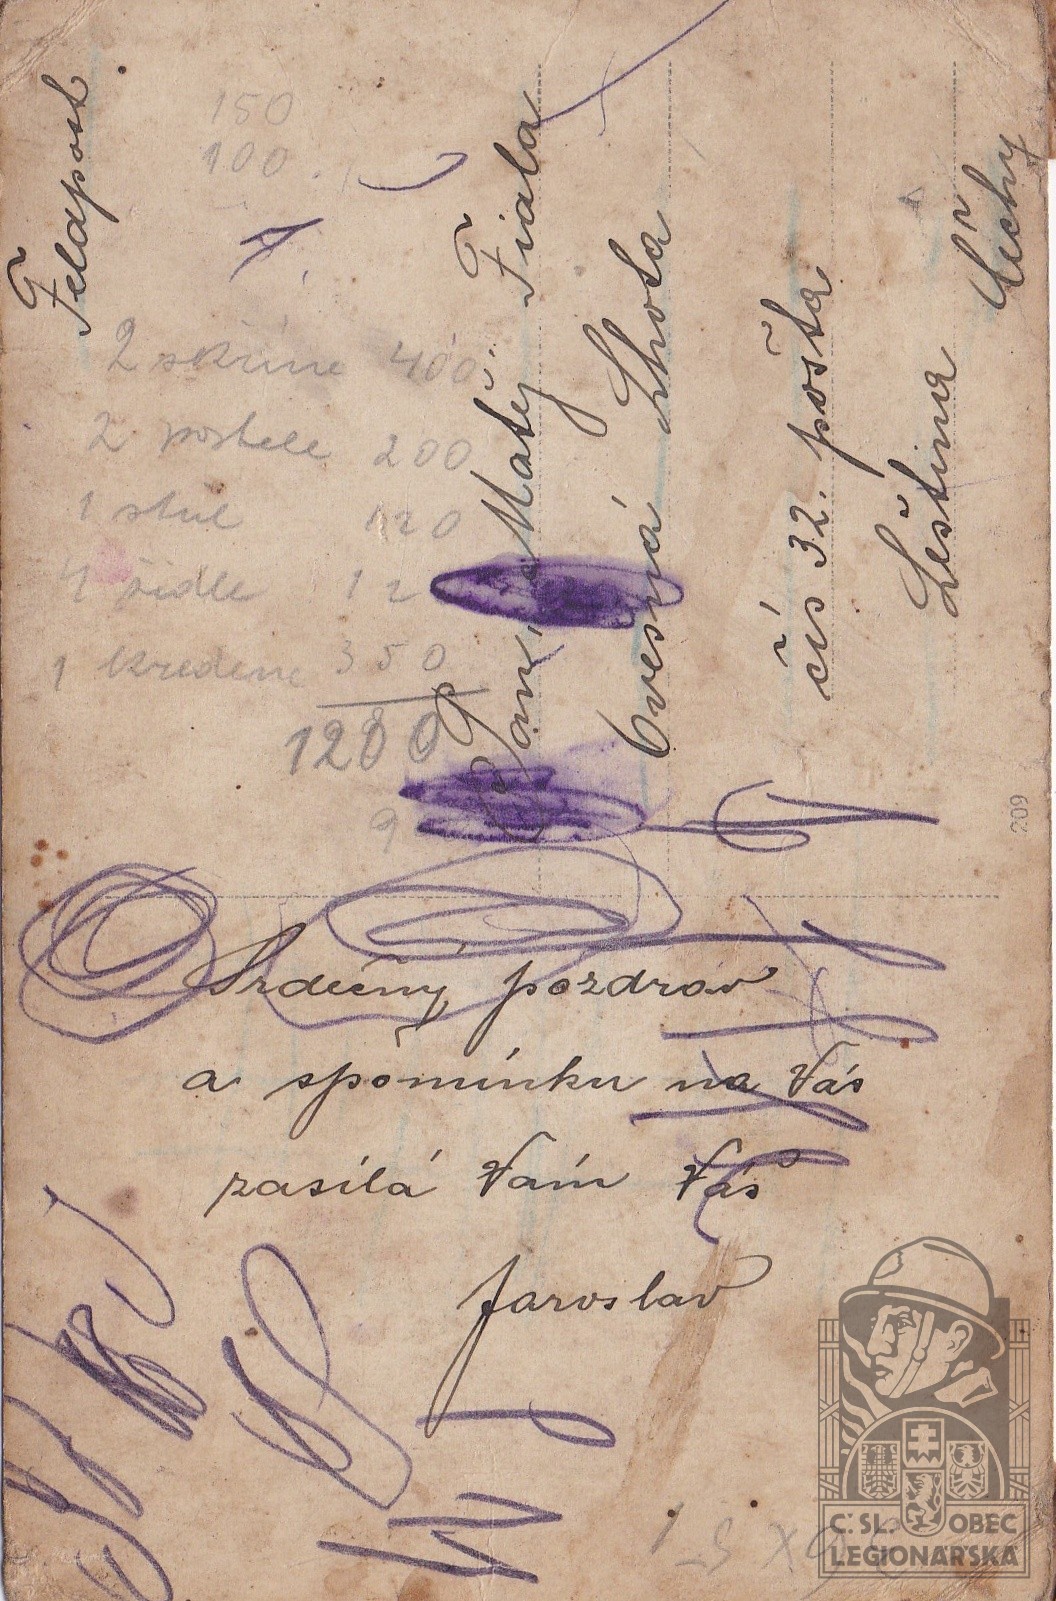 Feldpost
Pan Matěj Fiala
Ovesná Lhota
čís 32. pošta
Leština
Čechy
150
100
2 skříne 400
2 postele 200
1 stul 120
4 židle 12
1 kredenc 350
1280
9
209
Srdečný pozdrav
a spomínku na Vás
zasílá Vám Váš
Jaroslav
Č. SL. OBEC
LEGIONÁŘSKÁ